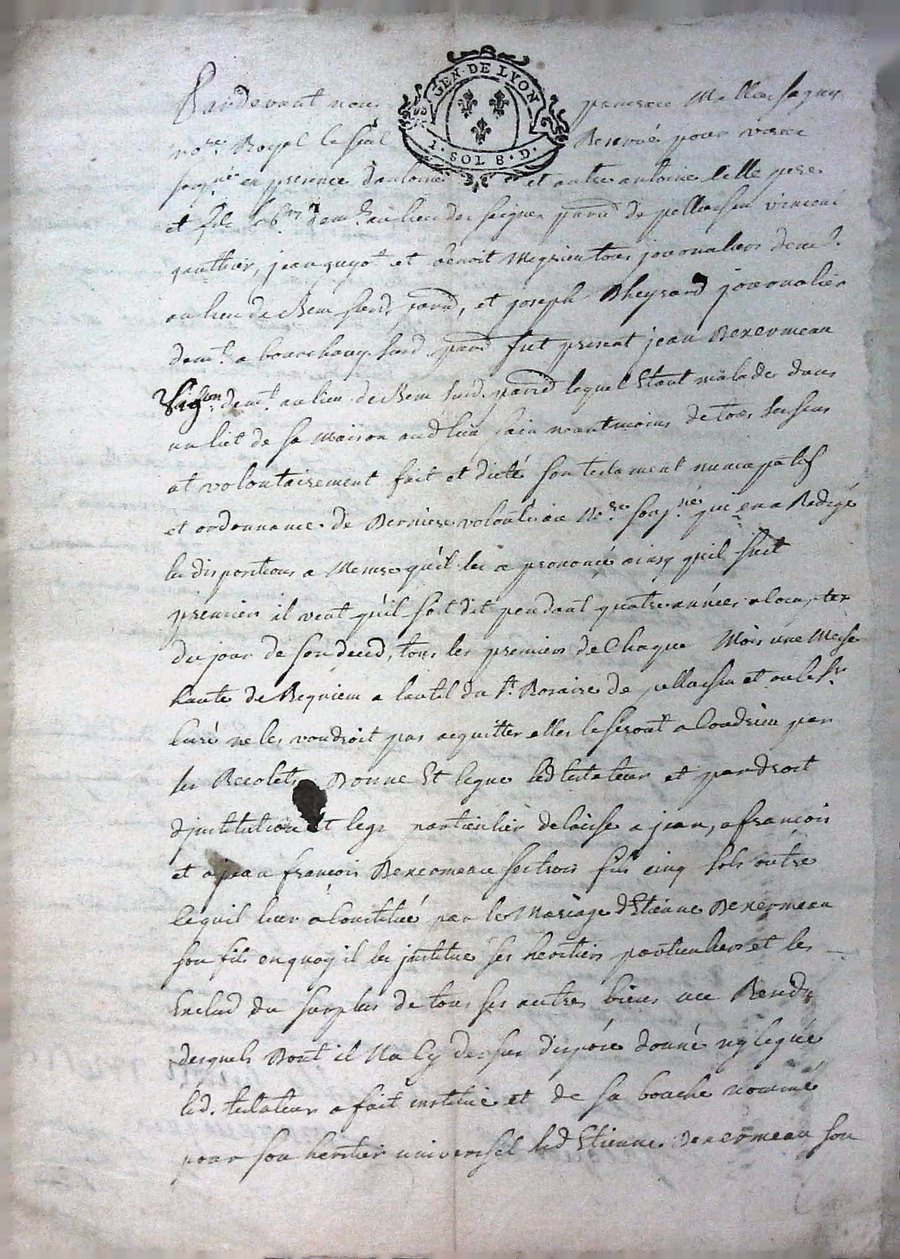 GEN. DE LYON
1. SOL 8. D.
Pardevant nous
no.re Royal
en presence d'antoine et autre antoine pere
et fils dem.t au lieu de parr.e de pellussin vincent
gauthier, jean et benoit tous journaliers dem.t
au lieu de parr.e, et joseph journalier
dem.t a parr.e fut present jean
dem.t au lieu de parr.e lequel Etant malade dans
un lict de sa Maison aud. lieu sain neantmoins de tous ses sens
at volontairement fait et dicté son testament nuncupatif
et ordonnance de Derniere volonté au No.re souss.né qui en a Redigé
les dispositions a Mesure qu'il les a prononcé ainsy quil suit
premierem il veut qu'il soit dit pendant quatre années a compter
du jour de son deced, tous les premiers de Chaque Mois une Messe
haute de Requiem a lautel du S.t Rosaire de pellussin et ou le S.r
Curé ne les voudroit pas aquitter elles le seront a Condrieu par
les Recolets Donne Et legue led. testateur et par droit
d'jnstitution Et legs particulier delaisse a jean, a françois
et a jean françois ses trois fils cinq sols outre
ce quil leur a Constitué par le Mariage d'Etienne
son fils en quoy il les jnstitue ses heritiers particuliers et les
Exclud du surplus de tous ses autres biens au Residu
desquels Dont il Na Cy dessus disposé donné ny legué
led. testateur a fait institué et de sa bouche nommé
pour son heritier universel led. Etienne son